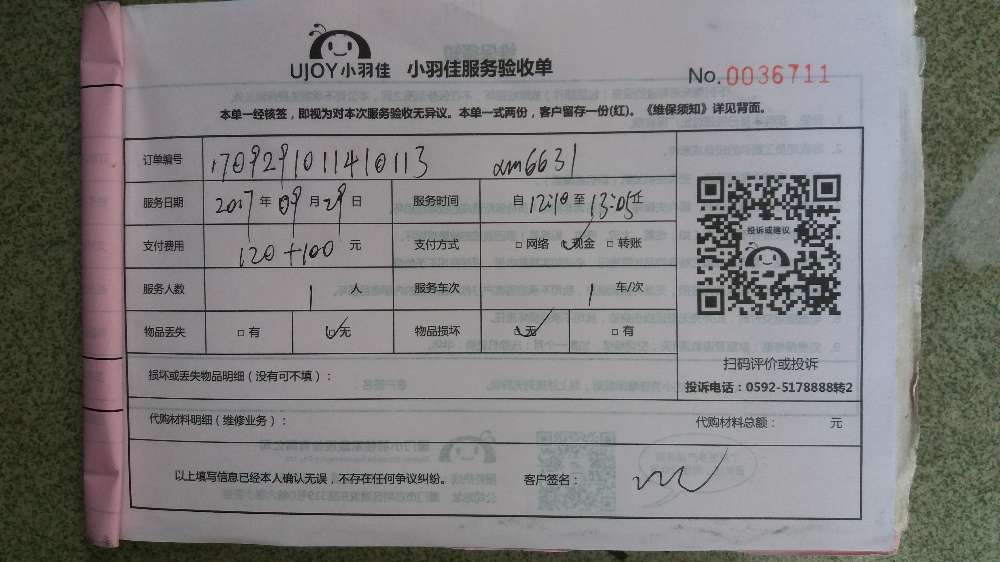 UJOY小羽佳 小羽佳服务验收单
No.0036711
本单一经核签，即视为对本次服务验收无异议。本单一式两份，客户留存一份(红)。《维保须知》详见背面。
订单编号 1709291011410113 xm6631
服务日期 2017年09月29日 服务时间 自12:10至13:05止
支付费用 120+100 元 支付方式 □网络 ✓现金 □转账
服务人数 1 人 服务车次 1 车/次
物品丢失 □有 ✓无 物品损坏 ✓无 □有
投诉或建议
扫码评价或投诉
投诉电话：0592-5178888转2
损坏或丢失物品明细（没有可不填）：
代购材料明细（维修业务）： 代购材料总额： 元
以上填写信息已经本人确认无误，不存在任何争议纠纷。 客户签名：